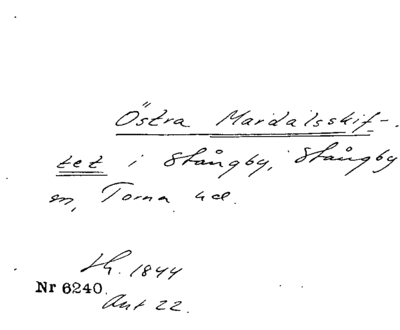 Östra Mardalsskif-
tet i Stångby, Stångby
sn, Torna hd.
Lh. 1844
Nr 6240.
Ant 22.